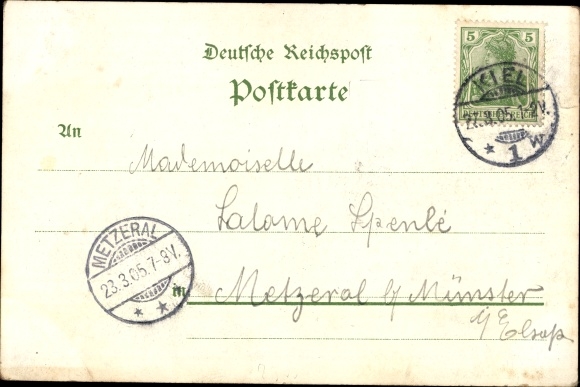 Deutsche Reichspost
Postkarte
5 5
DEUTSCHES REICH
KIEL
.05.1-2V.
* 1 w
An
Mademoiselle
Salome Spenlé
METZERAL
23.3.05.7-8V.
* *
in Metzeral b/ Münster
i/ Elsaß